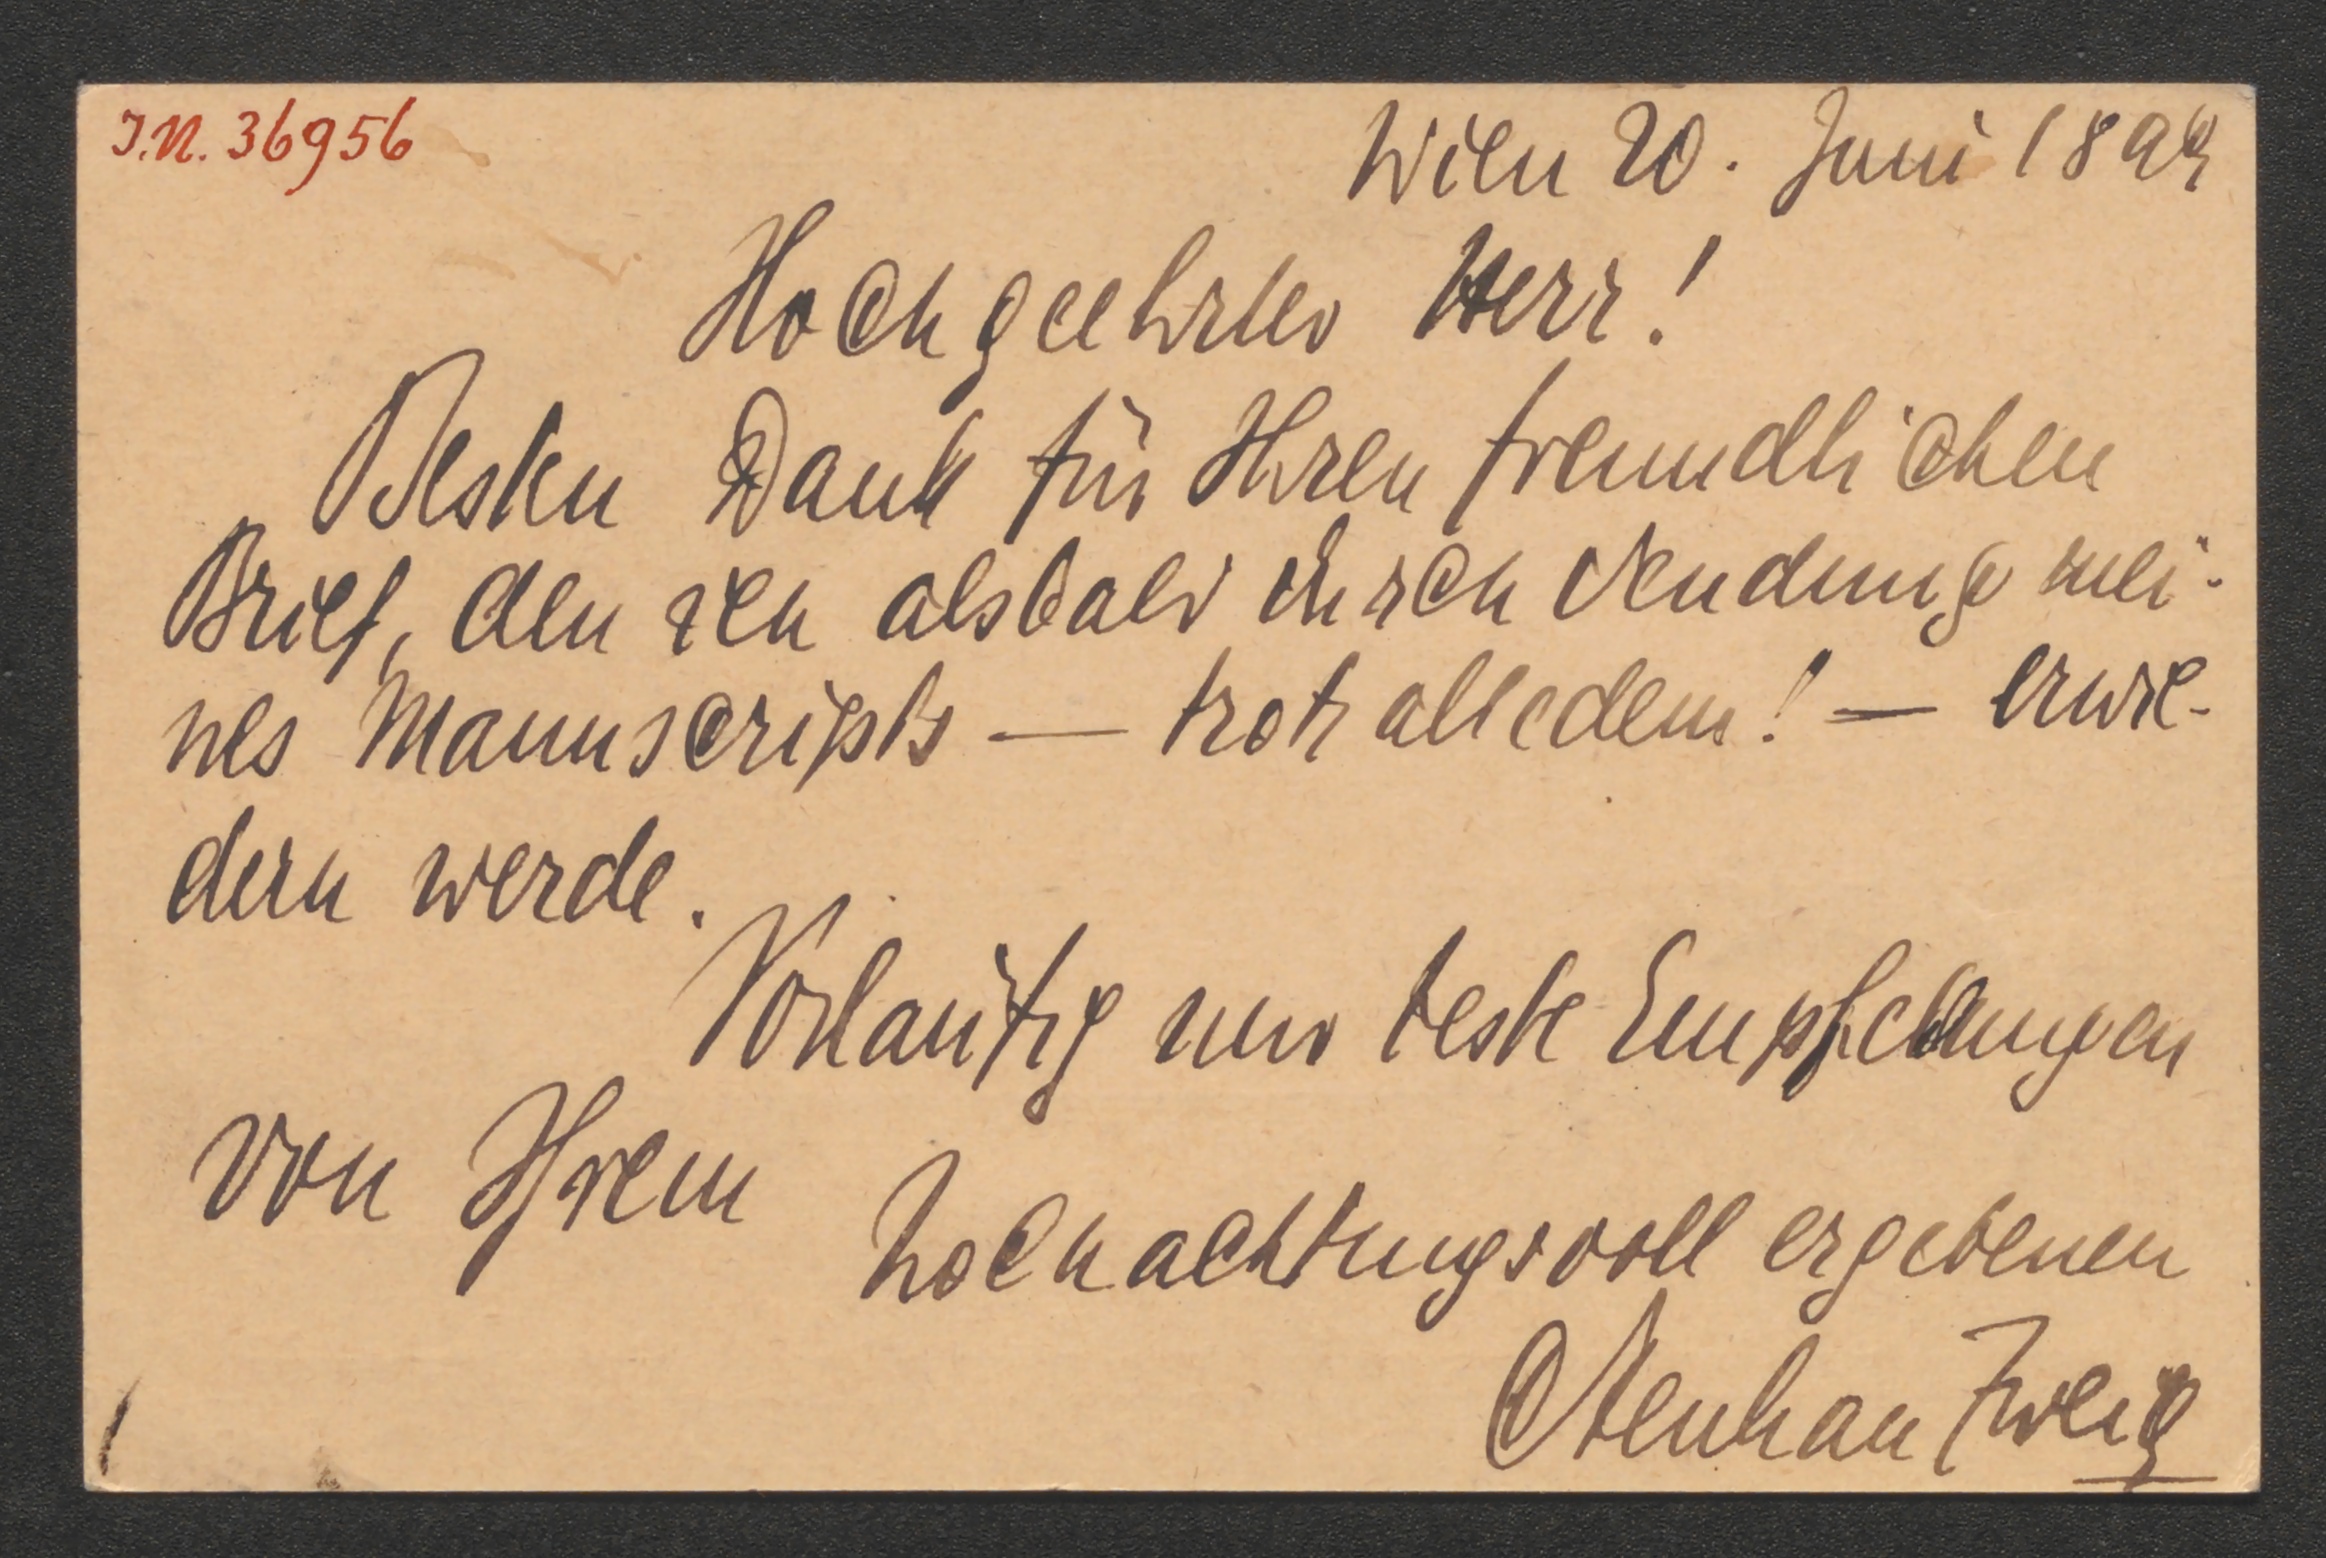 J.N. 36956
Wien 20. Juni 1899
Hochgeehrter Herr!
Besten Dank für Ihren freundlichen
Brief, den ich alsbald durch Sendung mei-
nes Manuscripts — trotz alledem! — erwie-
dern werde.
Vorläufig nur beste Empfehlungen
von Ihrem
hochachtungsvoll ergebenen
Stephan Zweig